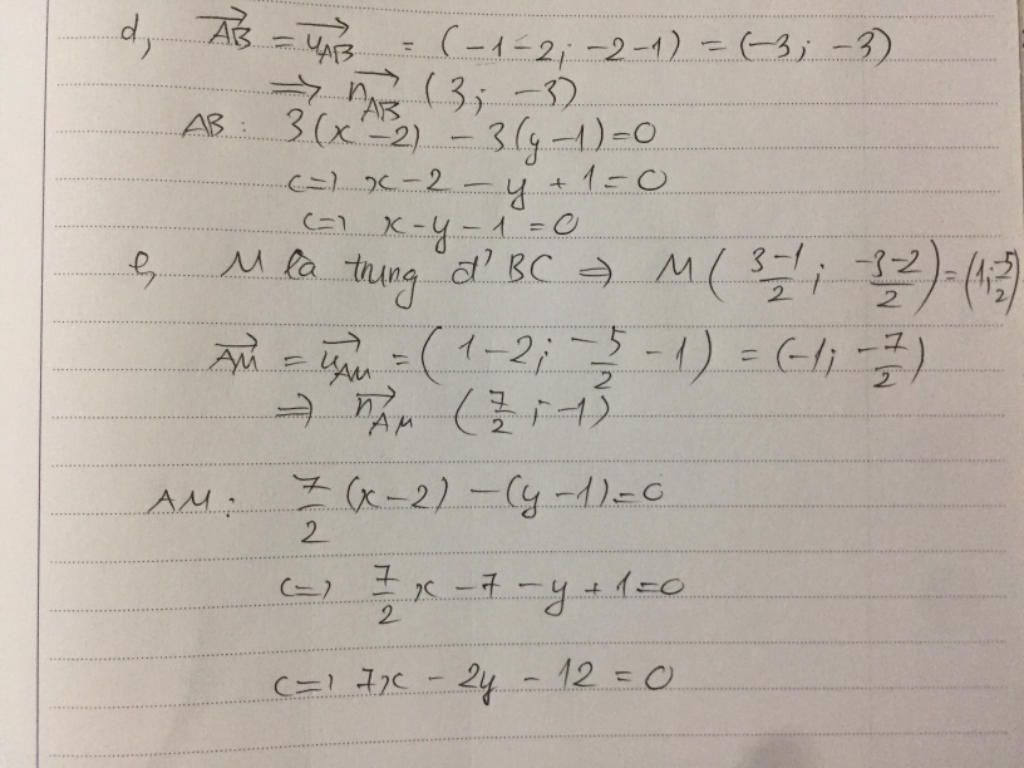 d, $\overrightarrow{AB} = \overrightarrow{u_{AB}} = (-1-2; -2-1) = (-3; -3)$
$\Rightarrow \overrightarrow{n_{AB}} (3; -3)$
AB: $3(x-2) - 3(y-1) = 0$
$\Leftrightarrow x-2-y+1=0$
$\Leftrightarrow x-y-1=0$
e, M là trung đ' BC $\Rightarrow M\left(\frac{3-1}{2}; \frac{-3-2}{2}\right) = \left(1; \frac{-5}{2}\right)$
$\overrightarrow{AM} = \overrightarrow{u_{AM}} = \left(1-2; \frac{-5}{2}-1\right) = \left(-1; \frac{-7}{2}\right)$
$\Rightarrow \overrightarrow{n_{AM}} \left(\frac{7}{2}; -1\right)$
AM: $\frac{7}{2}(x-2) - (y-1) = 0$
$\Leftrightarrow \frac{7}{2}x - 7 - y + 1 = 0$
$\Leftrightarrow 7x - 2y - 12 = 0$